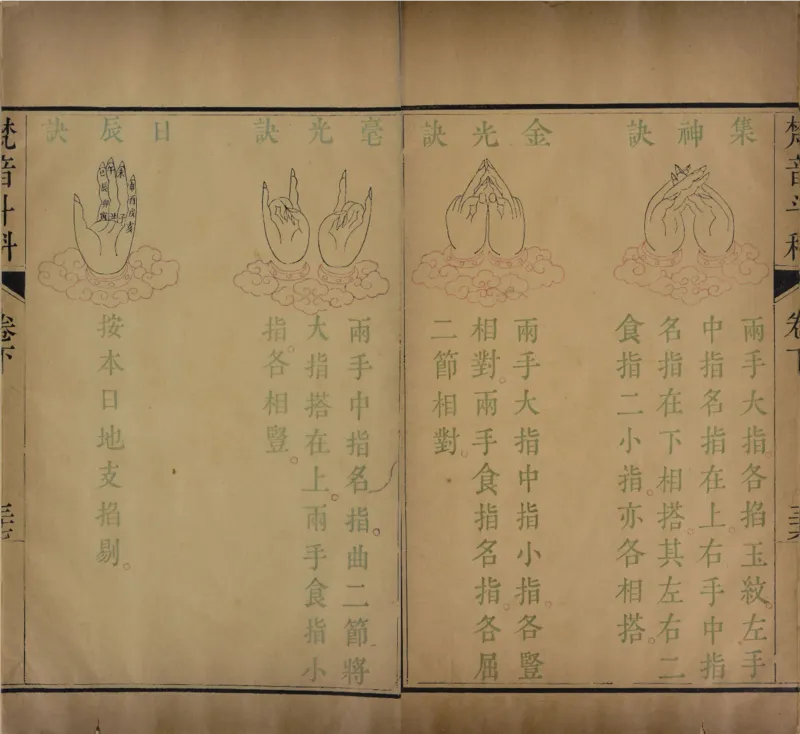 梵音斗科
卷下
集神訣
兩手大指。各掐玉紋。左手
中指名指在上。右手中指
名指在下相搭。其左右二
食指二小指。亦各相搭。
金光訣
兩手大指中指小指。各豎
相對。兩手食指名指。各屈
二節相對。
毫光訣
兩手中指名指。曲二節。將
大指搭在上。兩手食指小
指。各相豎。
日辰訣
按本日地支掐剔。
梵音斗科
卷下